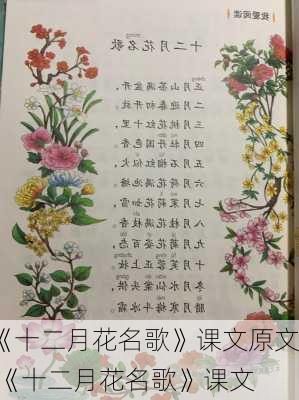 我爱阅读
十二月花名歌
正月山茶满盆开，
二月迎春初开放。
三月桃花红十里，
四月牡丹国色香。
五月石榴红似火，
六月荷花满池塘。
七月茉莉花如雪，
八月桂花满枝香。
九月菊花姿百态，
十月芙蓉正上妆。
冬月水仙案头供，
腊月寒梅斗冰霜。
《十二月花名歌》课文原文
《十二月花名歌》课文